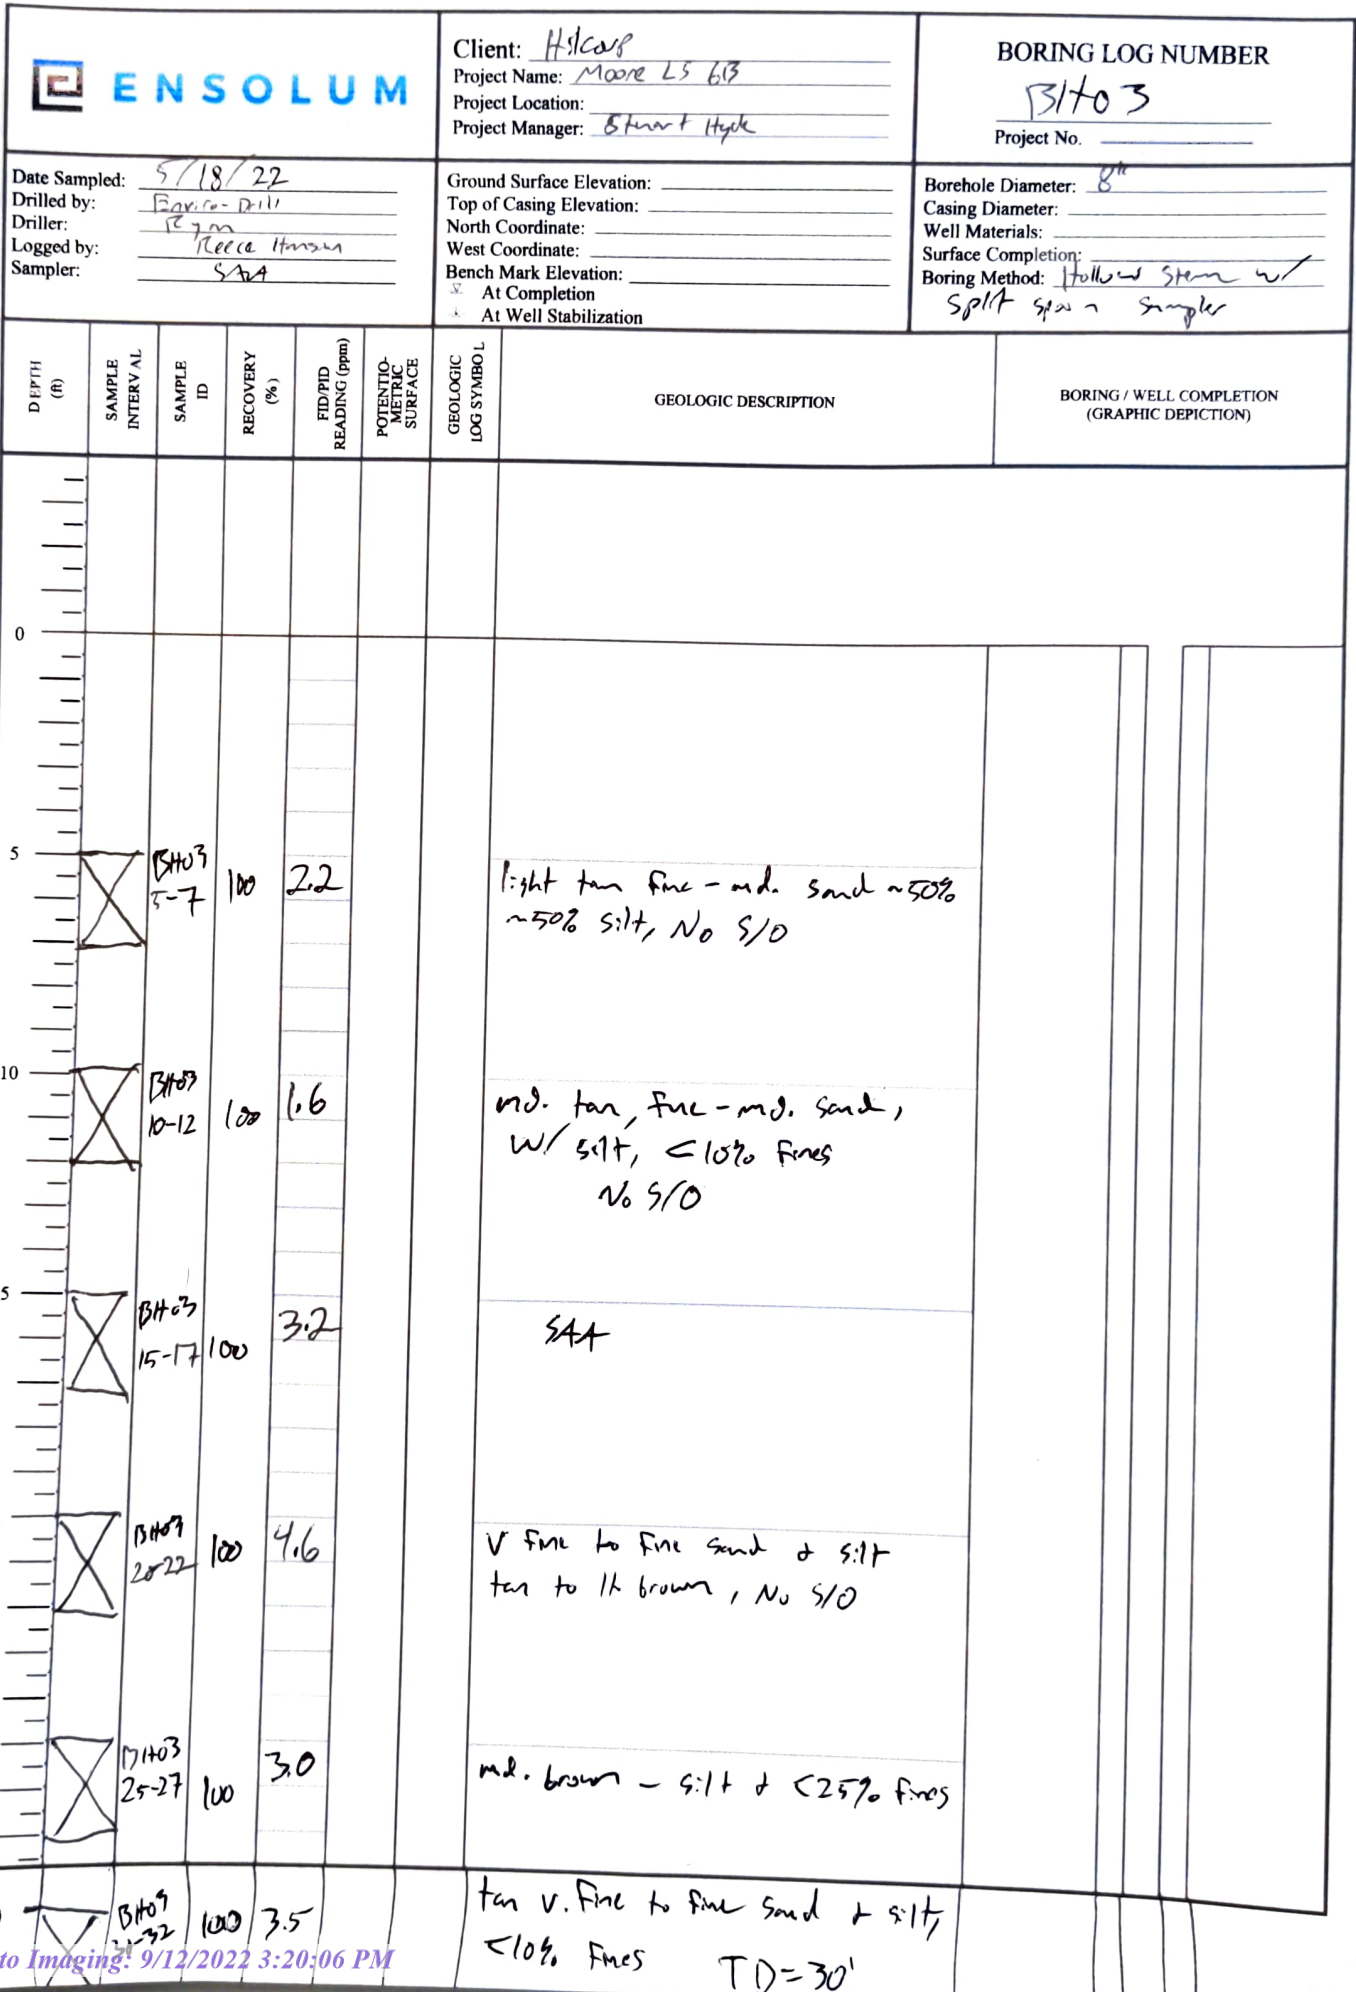 ENSOLUM
Client: Hilcorp
Project Name: Moore LS 6B
Project Location:
Project Manager: Stuart Hyde
BORING LOG NUMBER
BH03
Project No.
Date Sampled: 5/18/22
Drilled by: Enviro-Drill
Driller: Ryan
Logged by: Reece Hanson
Sampler: SAA
Ground Surface Elevation:
Top of Casing Elevation:
North Coordinate:
West Coordinate:
Bench Mark Elevation:
At Completion
At Well Stabilization
Borehole Diameter: 8"
Casing Diameter:
Well Materials:
Surface Completion:
Boring Method: Hollow Stem w/
Split spoon sampler
DEPTH
(ft)
SAMPLE
INTERVAL
SAMPLE
ID
RECOVERY
(%)
FID/PID
READING (ppm)
POTENTIO-
METRIC
SURFACE
GEOLOGIC
LOG SYMBOL
GEOLOGIC DESCRIPTION
BORING / WELL COMPLETION
(GRAPHIC DEPICTION)
0
5
BH03
5-7
100
2.2
light tan fine - md. sand ~50%
~50% silt, No S/O
10
BH03
10-12
100
1.6
md. tan, fine - md. sand,
w/ silt, <10% fines
No S/O
5
BH03
15-17
100
3.2
SAA
BH03
20-22
100
4.6
v fine to fine sand & silt
tan to lt brown, No S/O
BH03
25-27
100
3.0
md. brown - silt & <25% fines
BH03
30-32
100
3.5
tan v. fine to fine sand & silt,
<10% fines
TD=30'
to Imaging: 9/12/2022 3:20:06 PM